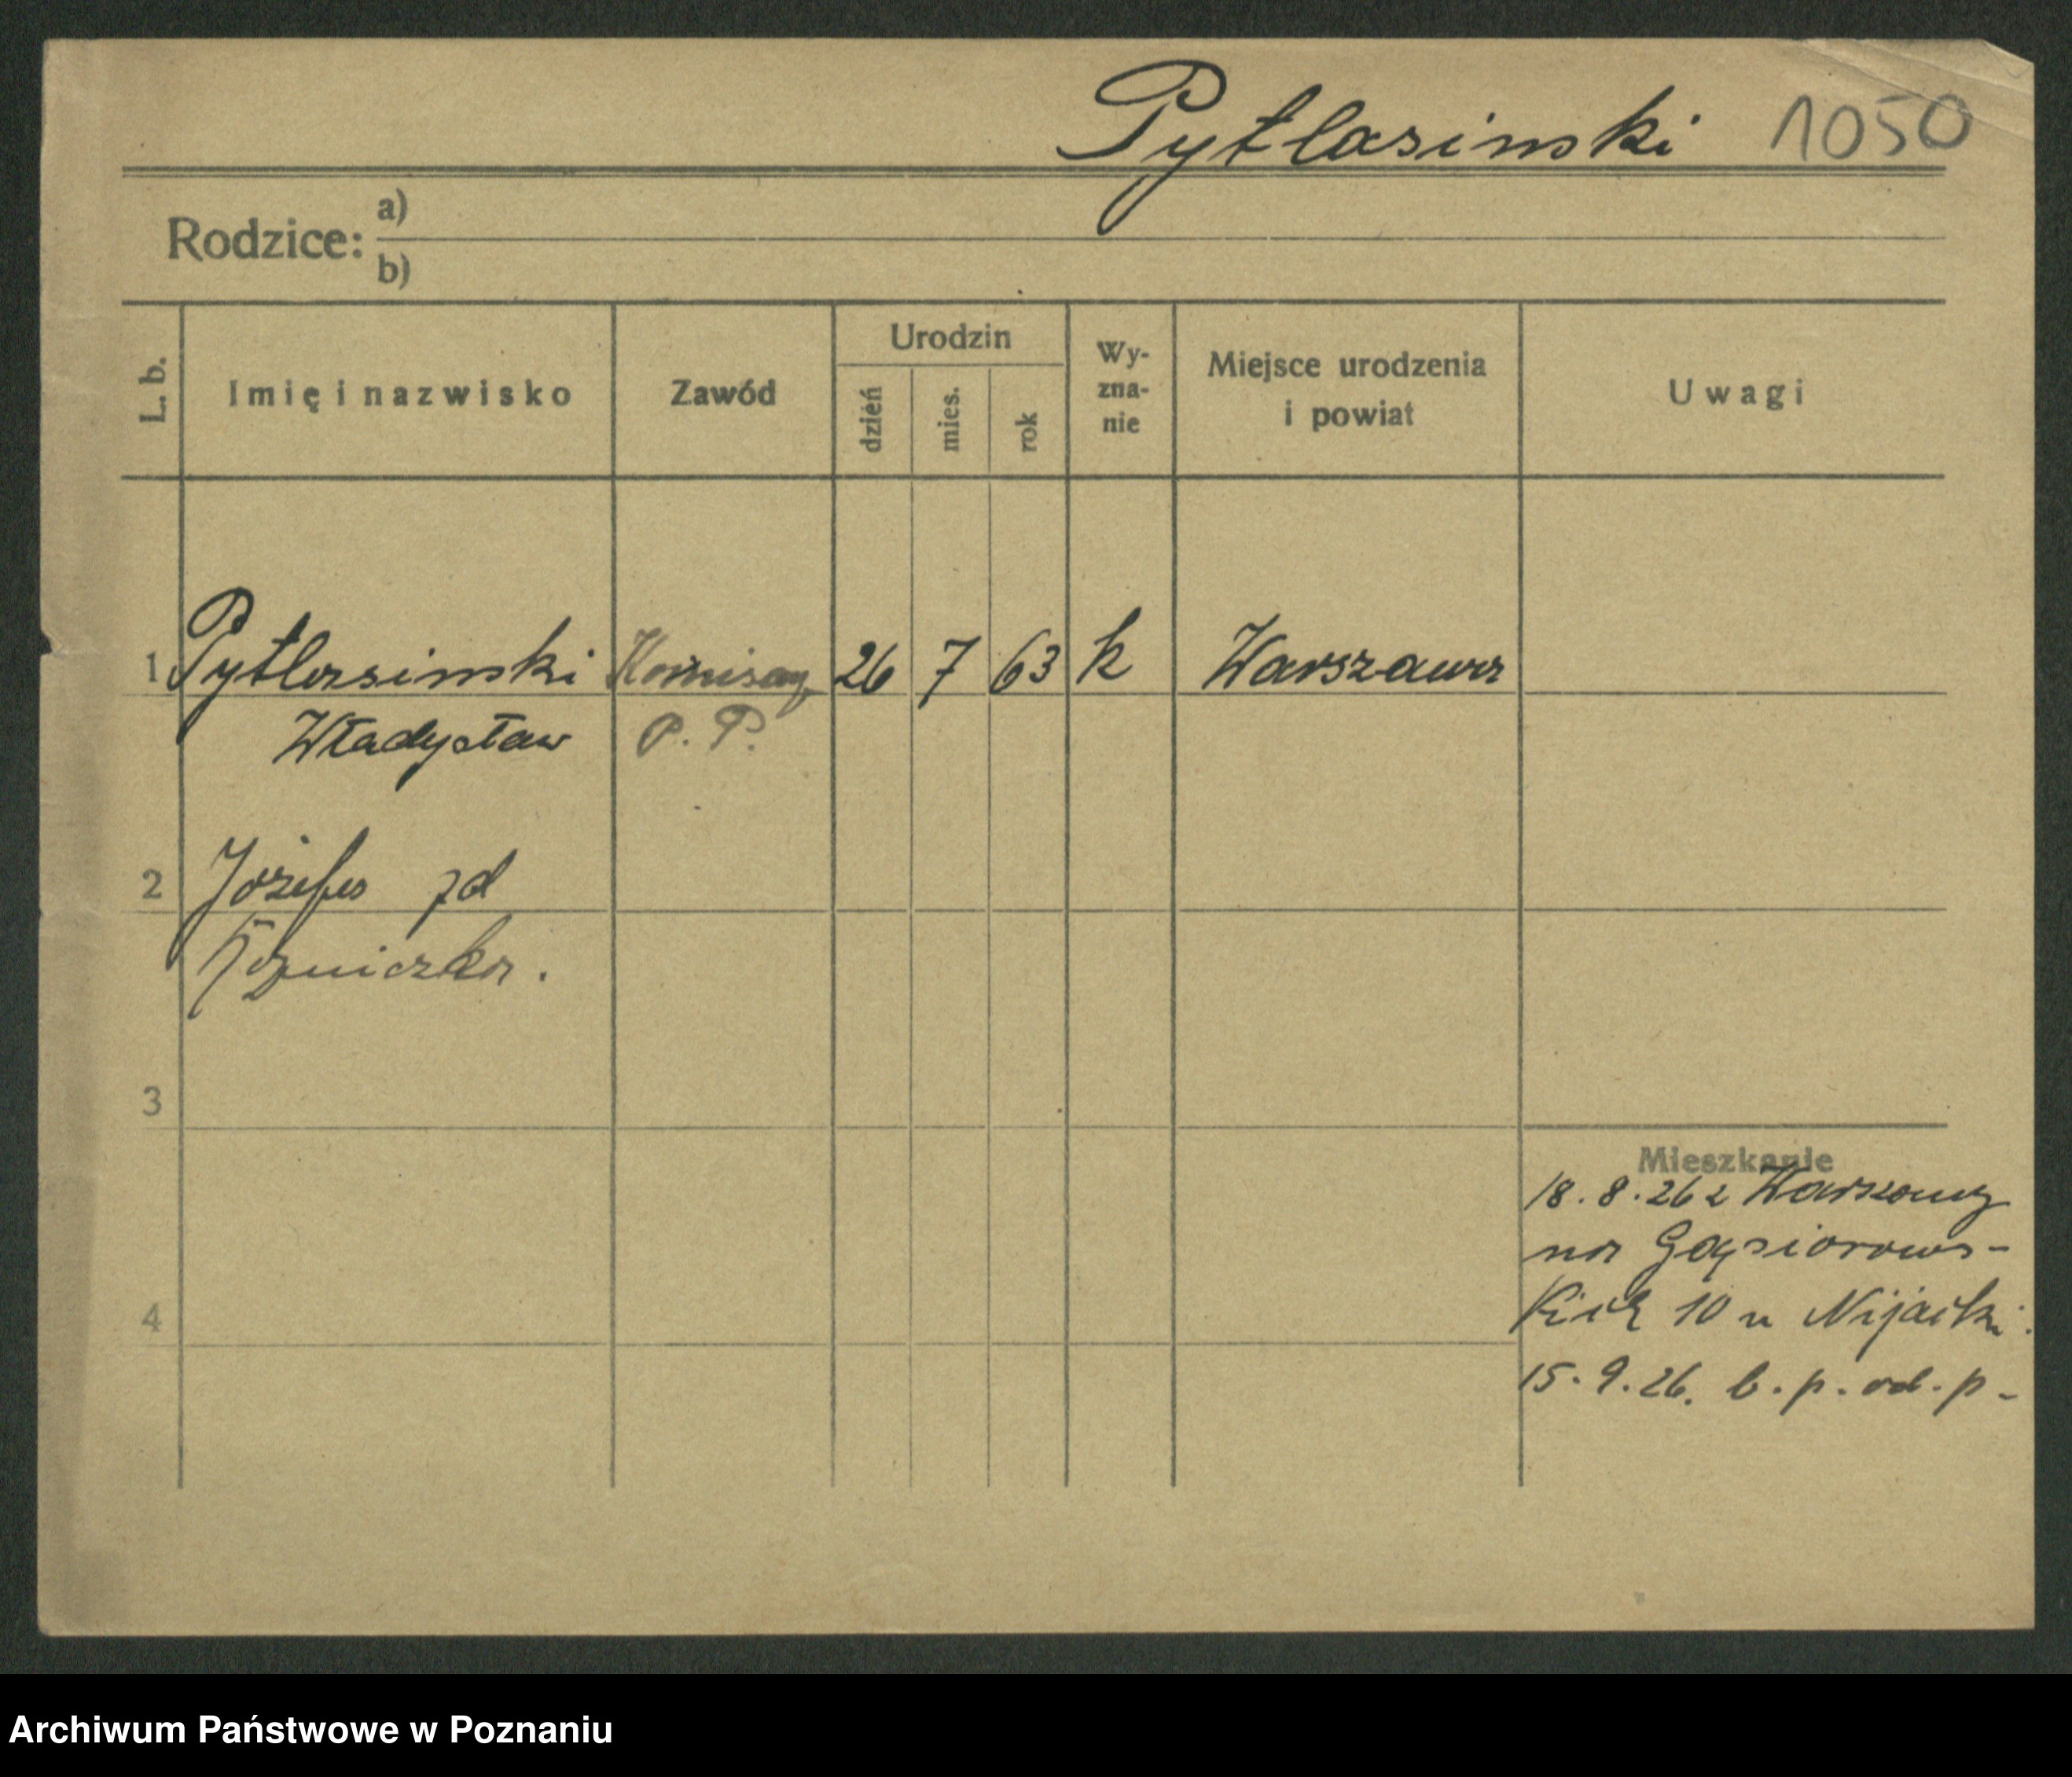 Pytlasinski 1050
Rodzice: a)
b)
L. b.
Imię i nazwisko
Zawód
Urodzin
dzień
mies.
rok
Wy-
zna-
nie
Miejsce urodzenia
i powiat
Uwagi
1 Pytlasinski Komisarz 26 7 63 k Warszawa
Władysław P. P.
2 Józefa zd
3
4
Mieszkanie
18.8.26 z Warszawy
na Gąsiorows-
kich 10 u
15.9.26. b. p. od. p-
Archiwum Państwowe w Poznaniu